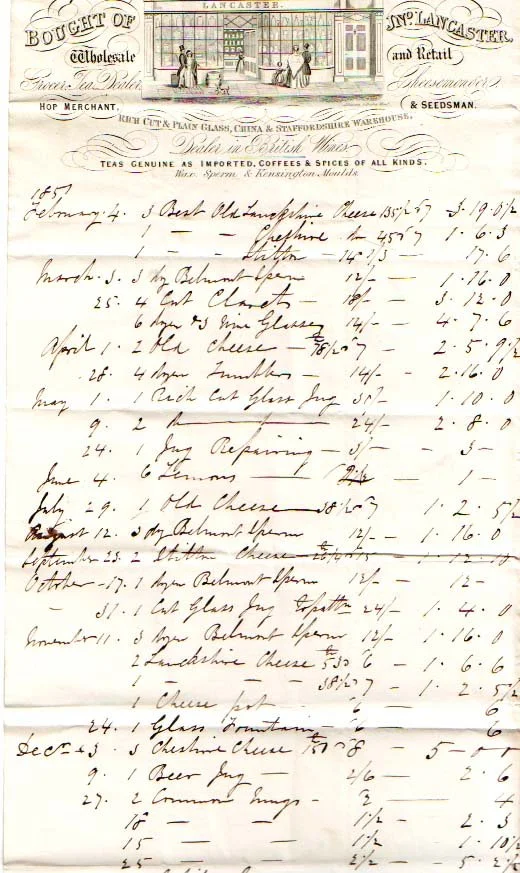 LANCASTER.
BOUGHT OF JNO. LANCASTER,
Wholesale and Retail
Grocer, Tea Dealer, Cheesemonger,
HOP MERCHANT, & SEEDSMAN.
RICH CUT & PLAIN GLASS, CHINA & STAFFORDSHIRE WAREHOUSE,
Dealer in British Wines
TEAS GENUINE AS IMPORTED, COFFEES & SPICES OF ALL KINDS.
Wax, Sperm & Kensington Moulds.
1851
February 4. 3 Best Old Lanckshire Cheese 135/2 @ 7 - 3. 19. 0 1/2
1 - - Cheshire 45 @ 7 1. 6. 3
1 - - Stilton - 14. 1/3 - 17. 6
March. 3. 3 Belmont Sperm 12/- - 1. 16. 0
25. 4 Cut Clarets - 18/- 3. 12. 0
6 Wine Glasses 14/- - 4. 7. 6
April 1. 2 Old Cheese - 78/2 @ 7 - 2. 5. 9 1/2
28. 4 Tumblers - 14/- - 2. 16. 0
May 1. 1 Rich Cut Glass Jug 30/- 1. 10. 0
9. 2 24/- 2. 8. 0
24. 1 Jug Repairing - 3/- - 3 -
June 4. 6 Lemons - 1 -
July 29. 1 Old Cheese 38 1/2 @ 7 1. 2. 5 1/2
August 12. 3 Belmont Sperm 12/- - 1. 16. 0
September 23. 2 Stilton Cheese - 1. 12. 10
October - 17. 1 Belmont Sperm 12/- 12 -
- 31. 1 Cut Glass Jug 24/- 1. 4. 0
November 11. 3 Belmont Sperm 12/- 1. 16. 0
2 Lanckshire Cheese 53 @ 6 - 1. 6. 6
1 - - - 38 1/2 @ 7 - 1. 2. 5 1/2
1 Cheese pot - 6 - 6
24. 1 Glass Fountain - 6 - 6
Decr. 3. 3 Cheshire Cheese 150 @ 8 - 5 - 0 0
9. 1 Beer Jug - 2/6 - 2. 6
27. 2 Common Mugs - 2 - 4
18 - - 1 1/2 - 2. 3
15 - - 1 1/2 1. 10 1/2
25 - - 2 1/2 - 5. 2 1/2